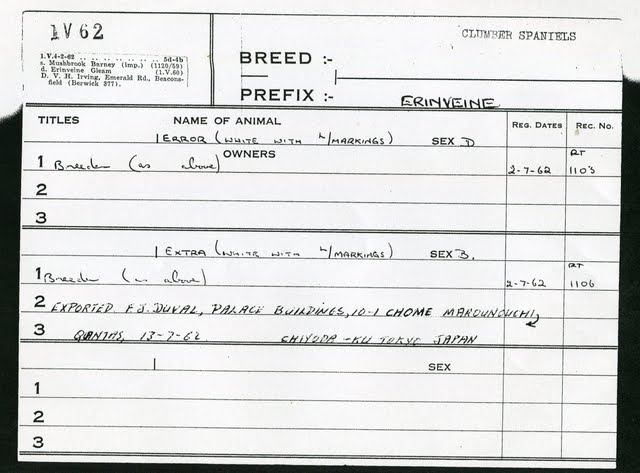 1 V 62
CLUMBER SPANIELS
1.V.4-2-62 .......................... 5d-4b
s. Mushbrook Barney (imp.) (1120/59)
d. Erinveine Gleam (1.V.60)
D. V. H. Irving, Emerald Rd., Beacons-
field (Berwick 377).
BREED :-
PREFIX :- ERINVEINE
TITLES NAME OF ANIMAL REG. DATES REC. No.
ERROR (WHITE WITH L/MARKINGS) SEX D
OWNERS RT
1 Breeder (as above) 2-7-62 1105
2
3
EXTRA (WHITE WITH L/MARKINGS) SEX B.
RT
1 Breeder (as above) 2-7-62 1106
2 EXPORTED F.J. DUVAL, PALACE BUILDINGS, 10-1 CHOME MAROUNOUCHI,
3 QANTAS, 13-7-62 CHIYODA-KU TOKYO JAPAN
SEX
1
2
3